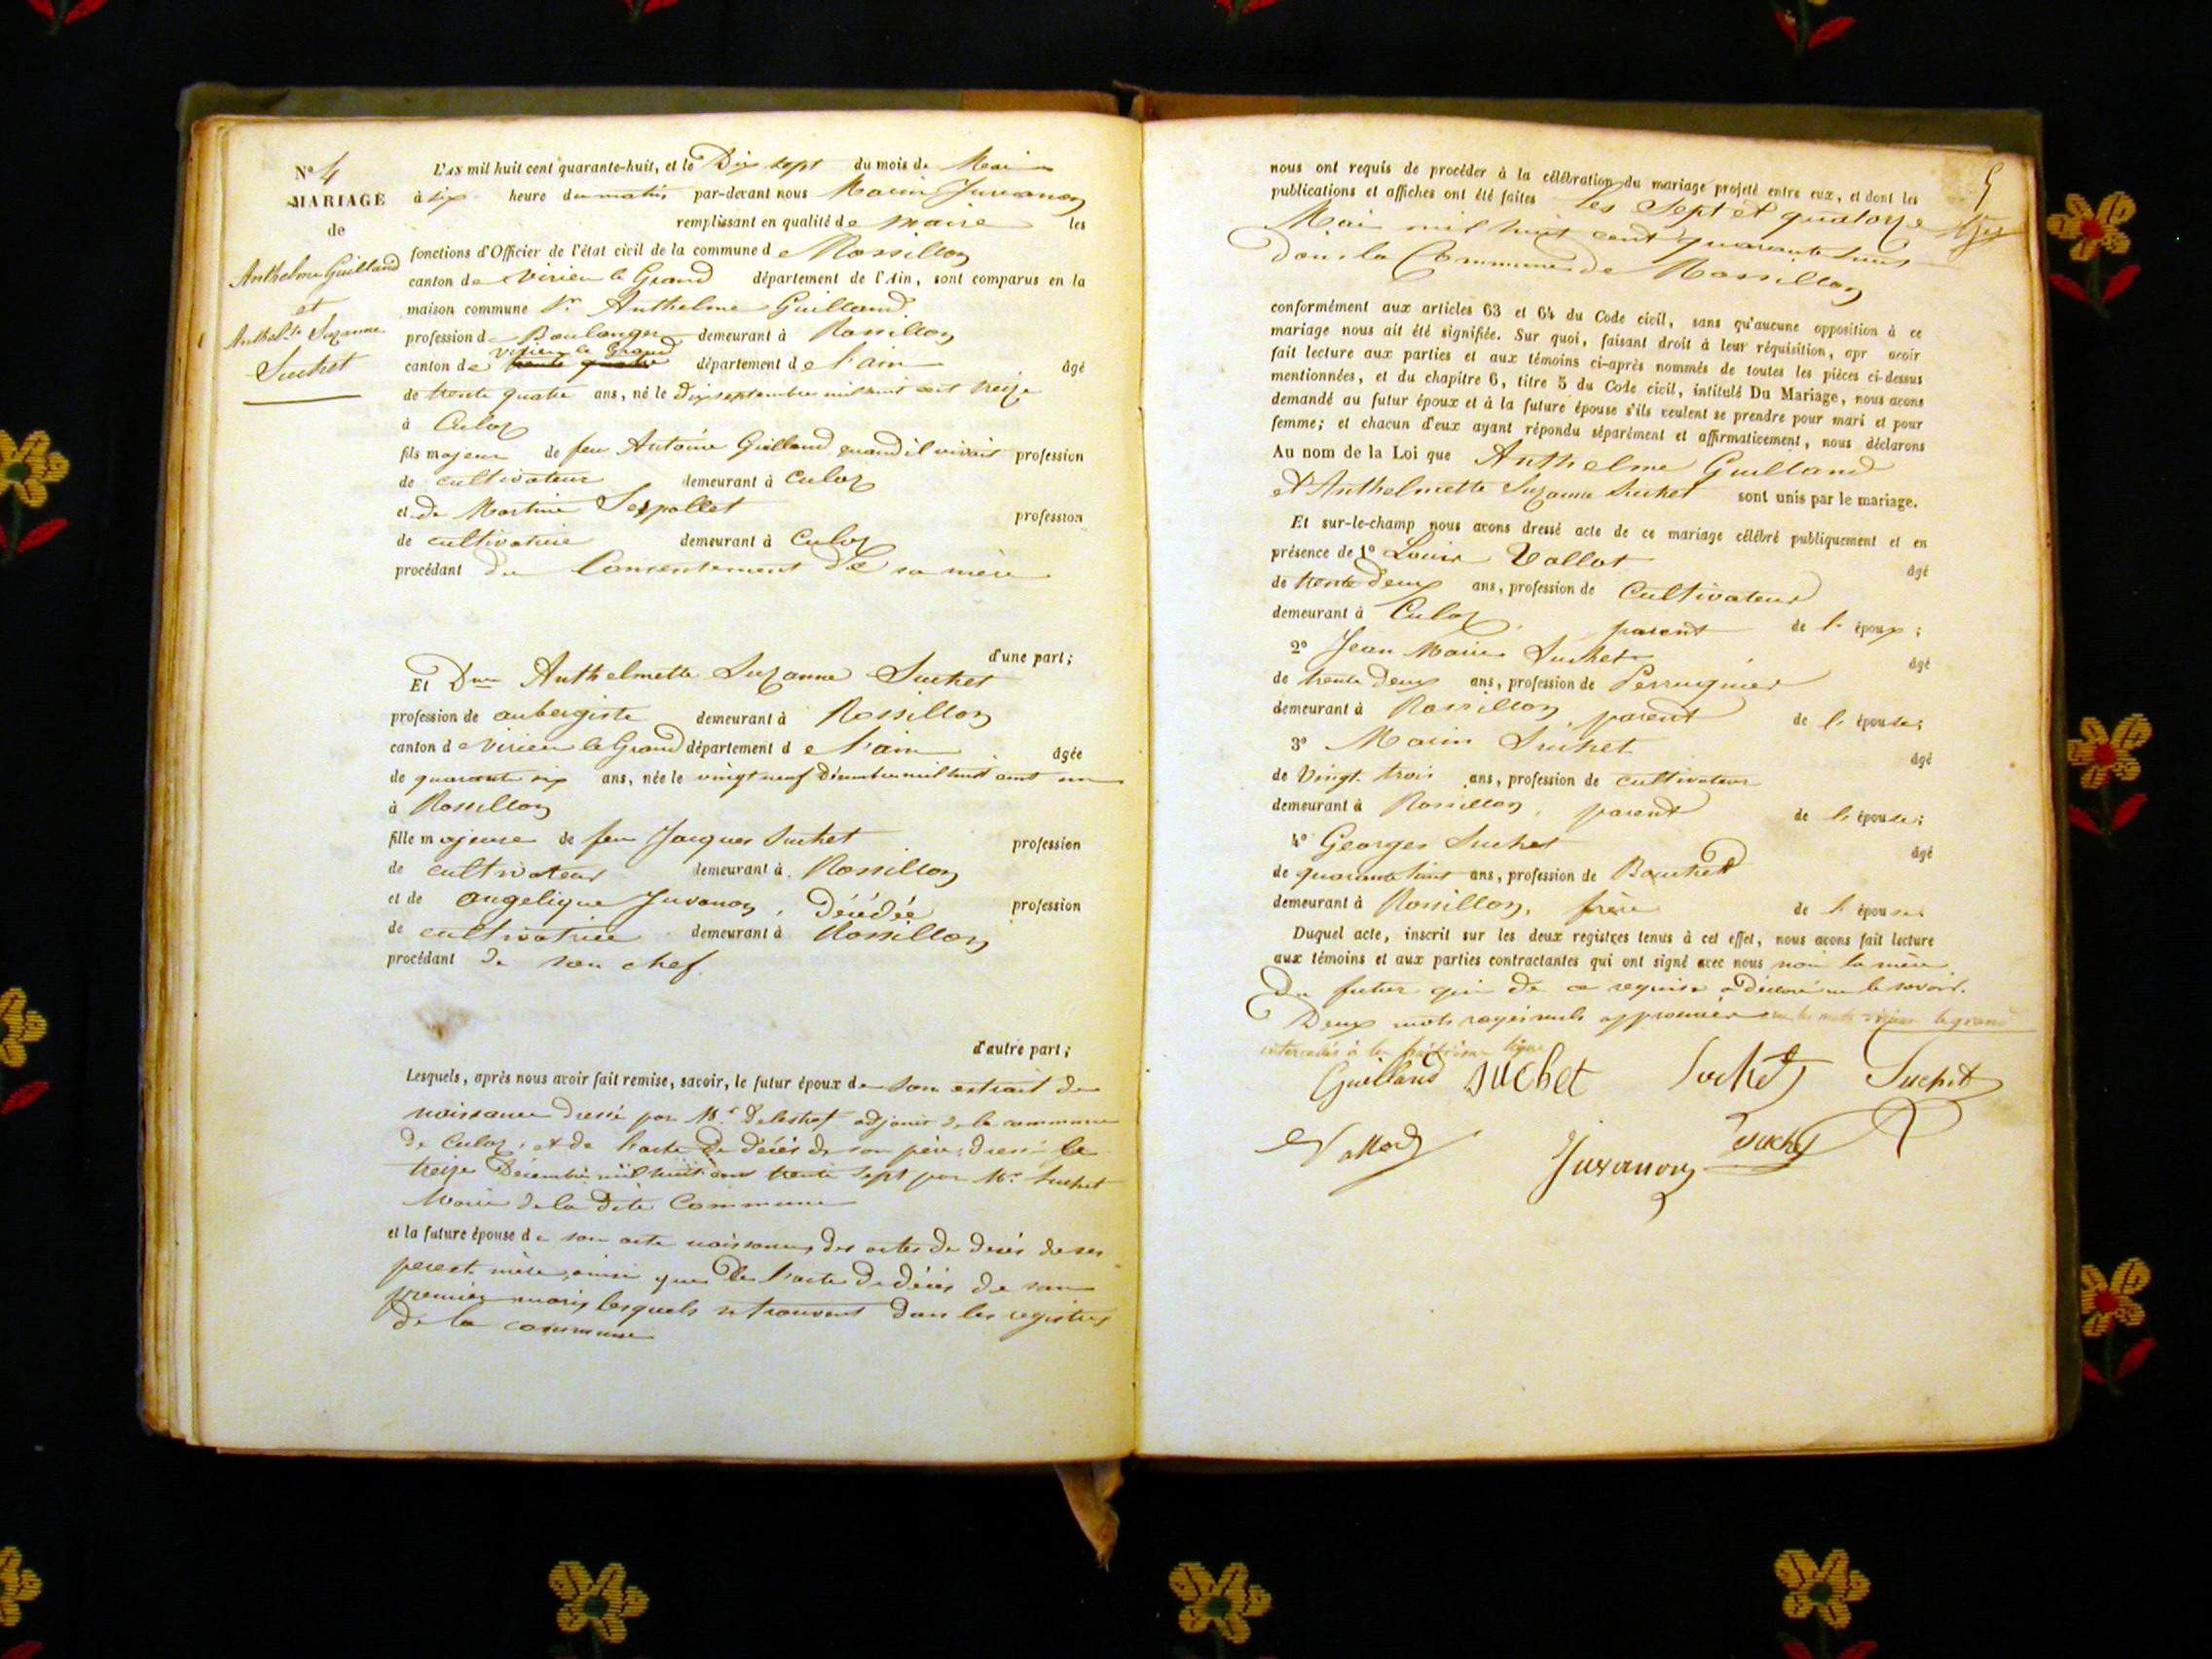 N° 4
MARIAGE
de
Anthelme Guilland
et
Anthel.te Suzanne
Suchet
L'AN mil huit cent quarante-huit, et le Dix sept du mois de Mai
à six heure du matin par-devant nous Marin Juvanon
remplissant en qualité de maire les
fonctions d'Officier de l'état civil de la commune de Rossillon
canton de Virieu le Grand département de l'Ain, sont comparus en la
maison commune Sr Anthelme Guilland
profession de Boulanger demeurant à Rossillon
virieu le Grand
canton de trente quatre département de l'ain âgé
de trente quatre ans, né le Dix septembre mil huit cent treize
à Culoz
fils majeur de feu Antoine Guilland quand il vivait profession
de cultivateur demeurant à Culoz
et de Martine Serpollet profession
de cultivatrice demeurant à Culoz
procédant du Consentement de sa mère
d'une part;
Et Dme Anthelmette Suzanne Suchet
profession de aubergiste demeurant à Rossillon
canton de Virieu le Grand département de l'ain âgée
de quarante six ans, née le vingt neuf Décembre mil huit cent un
à Rossillon
fille majeure de feu Jacques Suchet profession
de cultivateur demeurant à Rossillon
et de angelique Juvanon, Décédée profession
de cultivatrice demeurant à Rossillon
procédant de son chef
d'autre part;
Lesquels, après nous avoir fait remise, savoir, le futur époux de son extrait de
naissance dressé par Mr. adjoint de la commune
de Culoz, et de l'acte de décès de son père, dressé le
treize Décembre mil huit cent trente sept par Mr. Suchet
Maire de la dite Commune
et la future épouse de son acte naissance, des actes de décès de ses
père et mère, ainsi que de l'acte de décès de son
premier mari, lesquels se trouvent dans les registres
de la commune
5
nous ont requis de procéder à la célébration du mariage projeté entre eux, et dont les
publications et affiches ont été faites les Sept et quatorze
Mai mil huit cent quarante huit
dans la Commune de Rossillon
conformément aux articles 63 et 64 du Code civil, sans qu'aucune opposition à ce
mariage nous ait été signifiée. Sur quoi, faisant droit à leur réquisition, apr avoir
fait lecture aux parties et aux témoins ci-après nommés de toutes les pièces ci-dessus
mentionnées, et du chapitre 6, titre 5 du Code civil, intitulé Du Mariage, nous avons
demandé au futur époux et à la future épouse s'ils veulent se prendre pour mari et pour
femme; et chacun d'eux ayant répondu séparément et affirmativement, nous déclarons
Au nom de la Loi que Anthelme Guilland
et Anthelmette Suzanne Suchet sont unis par le mariage.
Et sur-le-champ nous avons dressé acte de ce mariage célébré publiquement et en
présence de 1° Louis Vallot âgé
de trente deux ans, profession de Cultivateur
demeurant à Culoz, parent de l'époux;
2° Jean Marie Suchet âgé
de trente deux ans, profession de Perruquier
demeurant à Rossillon, parent de l'épouse;
3° Marin Suchet âgé
de Vingt trois ans, profession de cultivateur
demeurant à Rossillon, parent de l'épouse;
4° Georges Suchet âgé
de quarante huit ans, profession de Boucher
demeurant à Rossillon, frère de l'épouse.
Duquel acte, inscrit sur les deux registres tenus à cet effet, nous avons fait lecture
aux témoins et aux parties contractantes qui ont signé avec nous non la mère
du futur qui de ce requise a déclaré ne le savoir.
Deux mots rayés nuls approuvés les mots virieu legrand
intercalés à la ligne
Guilland Suchet Suchet Suchet
Vallod Juvanon Suchet